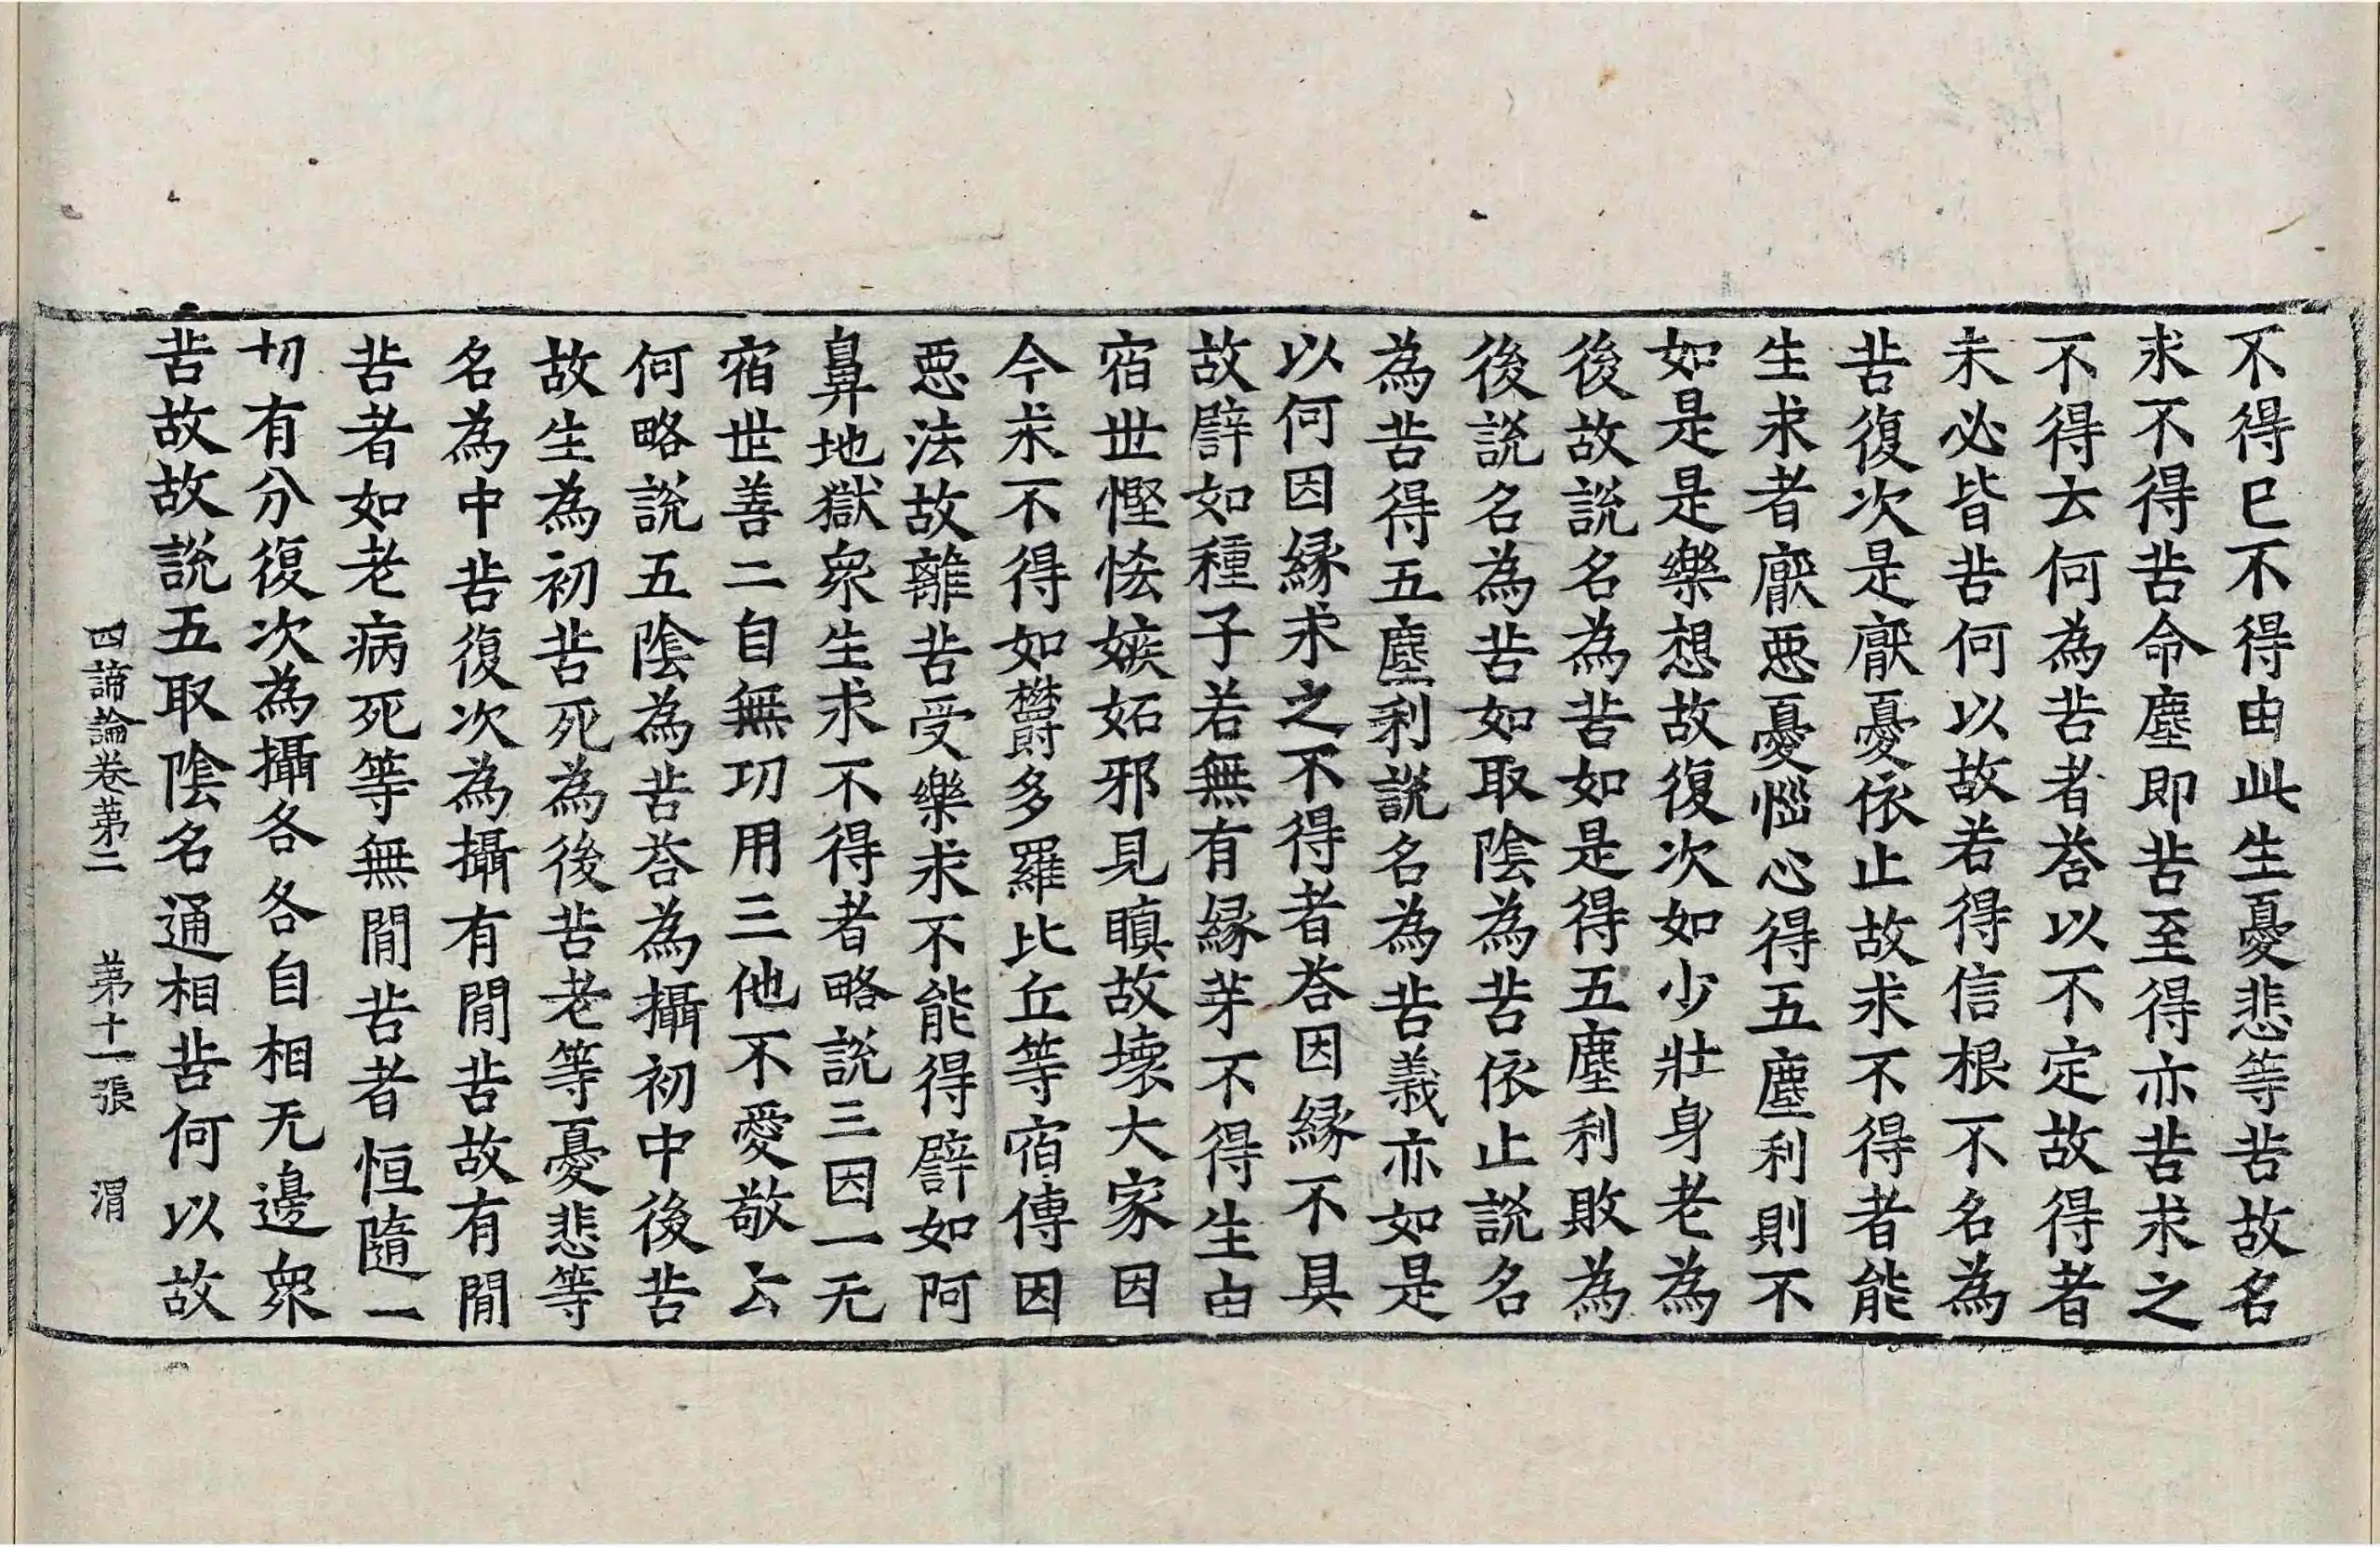 不得已不得由此生憂悲等苦故名
求不得苦命塵即苦至得亦苦求之
不得云何為苦者荅以不定故得者
未必皆苦何以故若得信根不名為
苦復次是厭憂依止故求不得者能
生求者厭惡憂惱心得五塵利則不
如是是樂想故復次如少壯身老為
後故說名為苦如是得五塵利敗為
後說名為苦如取陰為苦依止說名
為苦得五塵利說名為苦義亦如是
以何因緣求之不得者荅因緣不具
故譬如種子若無有緣芽不得生由
宿世慳悋嫉妬邪見瞋故壞大家因
今求不得如欝多羅比丘等宿傳因
惡法故離苦受樂求不能得譬如阿
鼻地獄衆生求不得者略說三因一无
宿世善二自無功用三他不愛敬云
何略說五陰為苦荅為攝初中後苦
故生為初苦死為後苦老等憂悲等
名為中苦復次為攝有間苦故有間
苦者如老病死等無間苦者恒隨一
切有分復次為攝各各自相无邊衆
苦故故說五取陰名通相苦何以故
四諦論卷第二　第十一張　渭